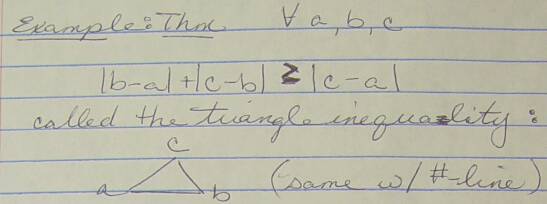 Example: Thm ∀ a, b, c
|b-a| + |c-b| ≥ |c-a|
called the triangle inequality:
c
a b (same w/ #-line)